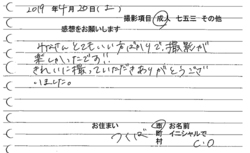 2019年4月20日(土)
撮影項目 成人 七五三 その他
感想をお願いします
みなさんとてもいい方ばかりで、撮影が
楽しかったです!!
きれいに撮っていただきありがとうござ
いました。
お住まい 市 お名前
つくば 町 イニシャルで
村 C.O